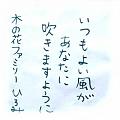 いつもよい風が
あなたに
吹きますように
木の花ファミリー ひろみ